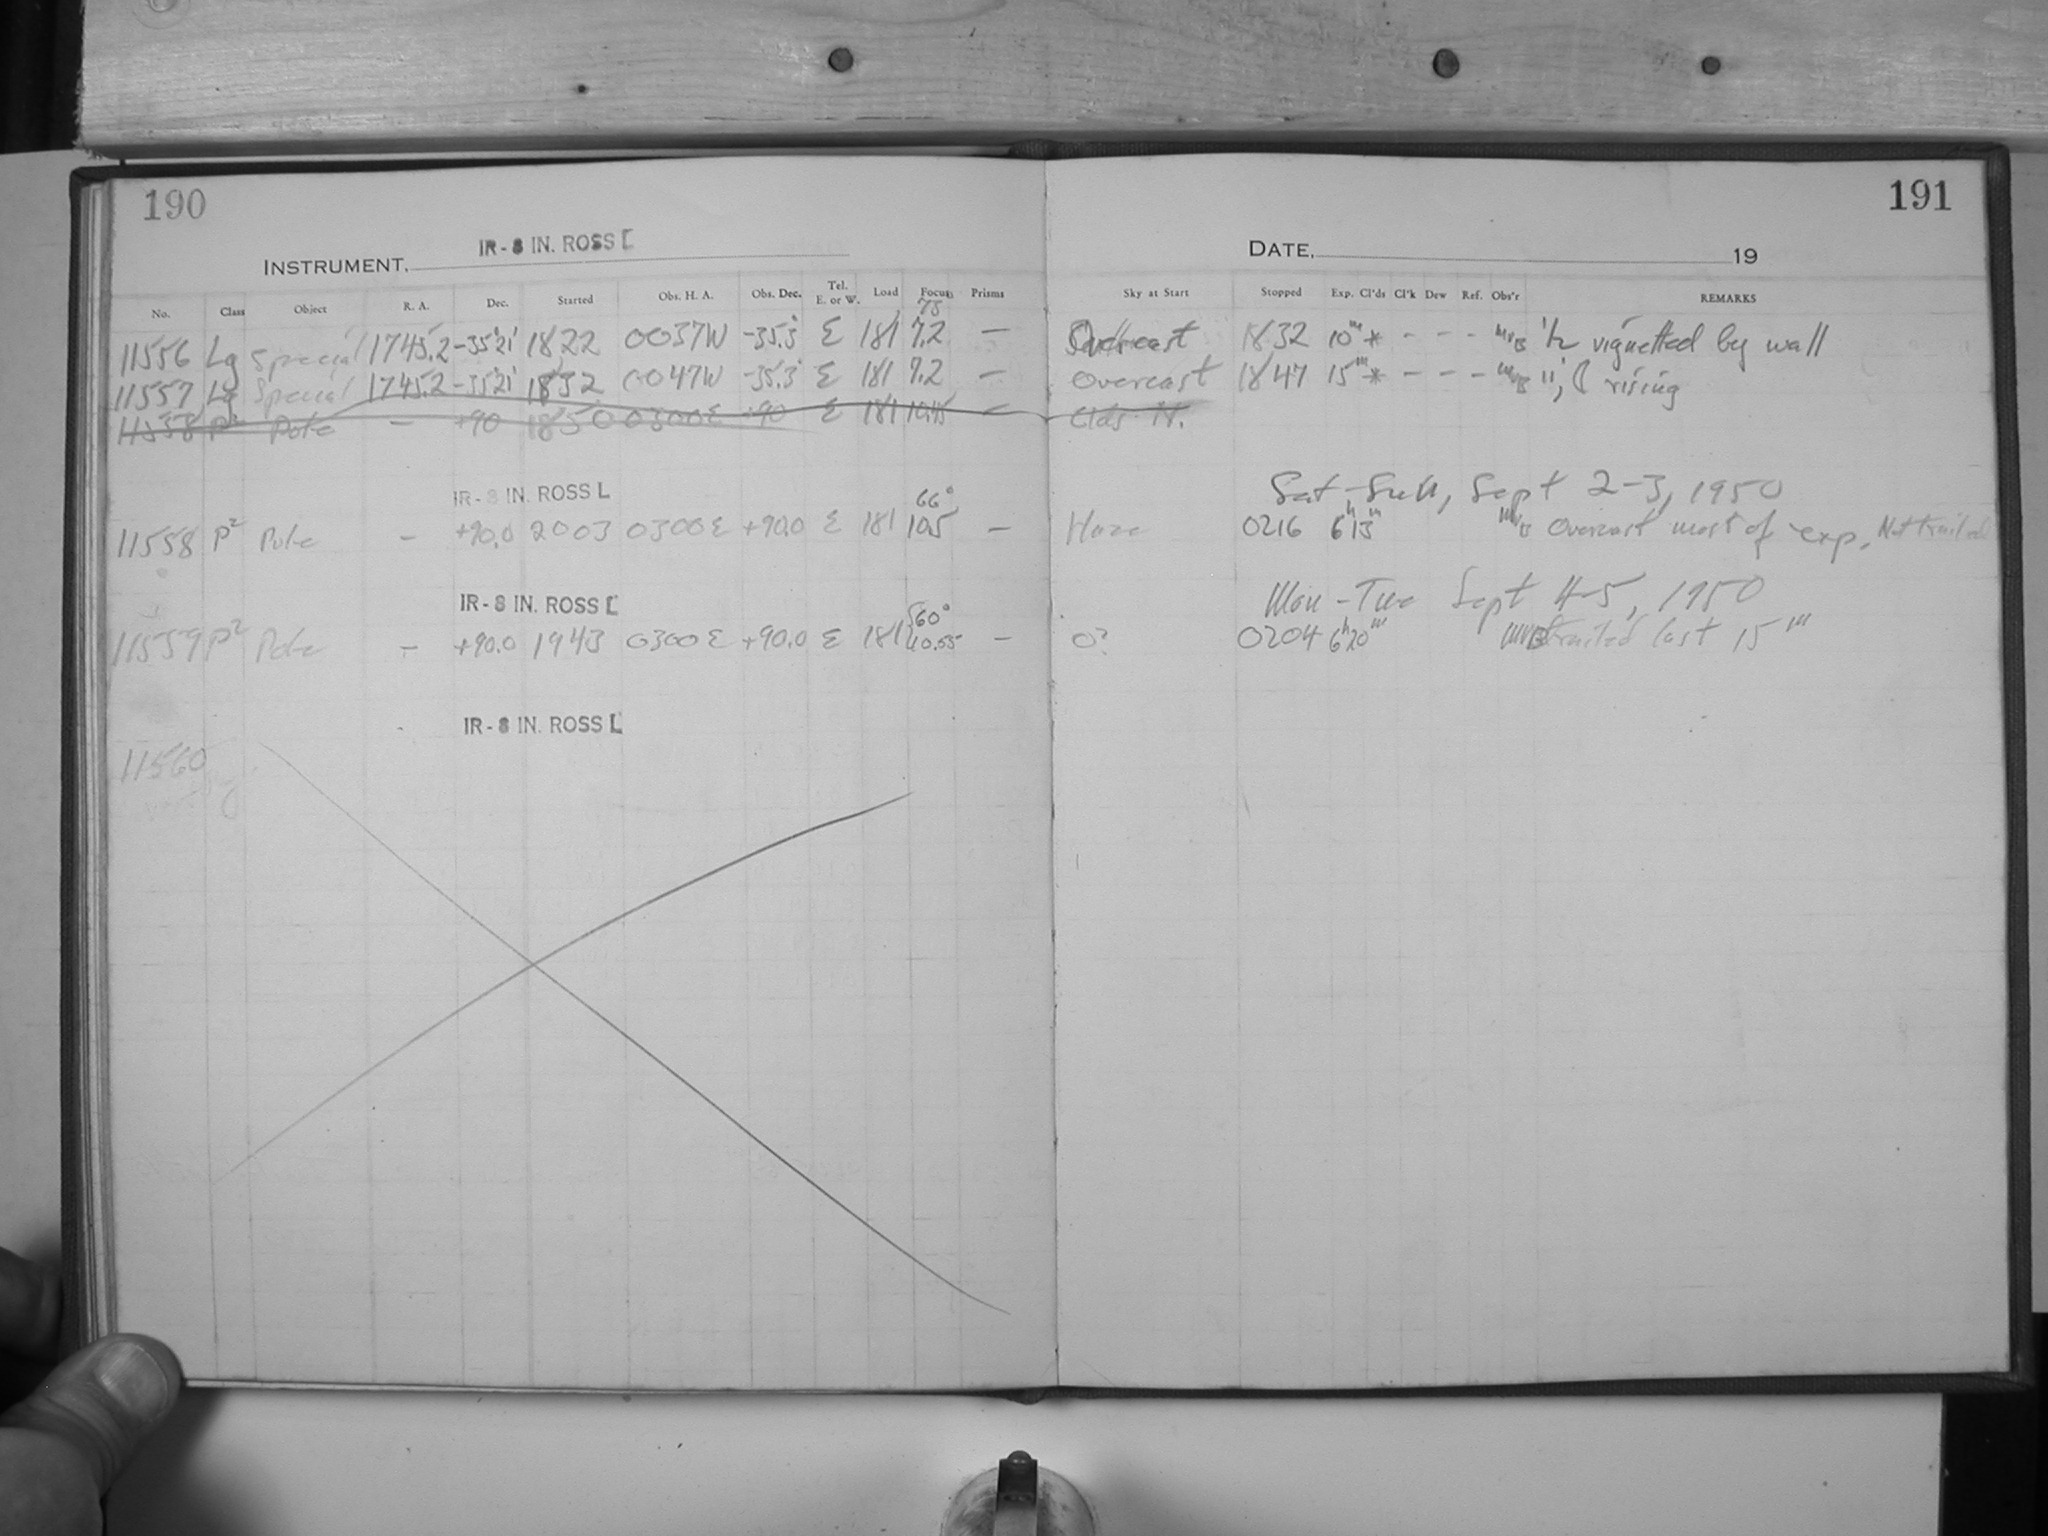 190
INSTRUMENT, IR - 8 IN. ROSS L
No. Class Object R. A. Dec. Started Obs. H. A. Obs. Dec. Tel. E. or W. Load Focus Prisms
75
11556 Lg Special 1745.2 -35°21' 1822 0037W -35.3 E 181 7.2 —
11557 Lg Special 1745.2 -35°21' 1832 0047W -35.3 E 181 7.2 —
11558 P² Pole — +90 1850 0300E +90 E 181 10.45 —
IR - 8 IN. ROSS L 66°
11558 P² Pole — +90.0 2003 0300E +90.0 E 181 10.5 —
IR - 8 IN. ROSS L 60°
11559 P² Pole — +90.0 1943 0300E +90.0 E 181 10.55 —
IR - 8 IN. ROSS L
11560
191
DATE, 19
Sky at Start Stopped Exp. Cl'ds Cl'k Dew Ref. Obs'r REMARKS
Overcast 1832 10m * - - - MVB ½ vignetted by wall
Overcast 1847 15m * - - - MVB "; ☾ rising
Clds N.
Sat-Sun, Sept 2-3, 1950
Haze 0216 6h13m MVB Overcast most of exp. Not trailed
Mon-Tue Sept 4-5, 1950
0? 0204 6h20m MVB trailed last 15m